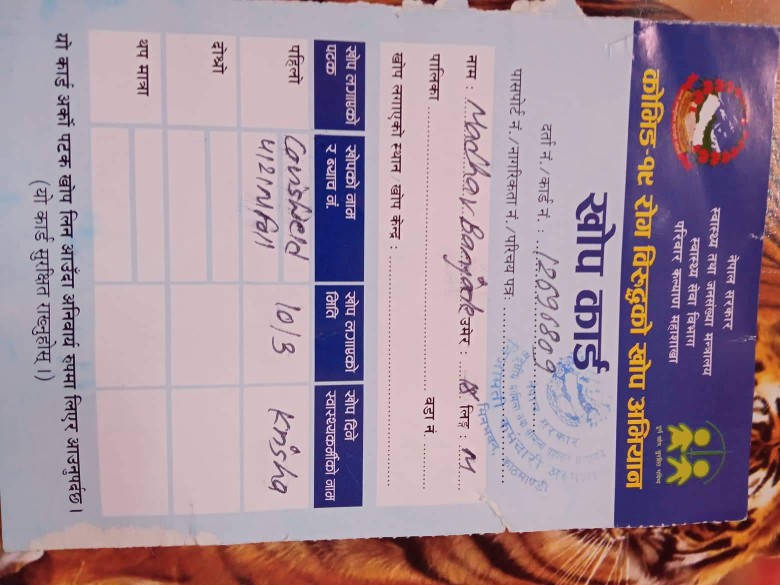 नेपाल सरकार
स्वास्थ्य तथा जनसंख्या मन्त्रालय
स्वास्थ्य सेवा विभाग
परिवार कल्याण महाशाखा
कोभिड-१९ रोग विरुद्धको खोप अभियान
खोप कार्ड
दर्ता नं. / कार्ड नं. :
पासपोर्ट नं. / नागरिकता नं. / परिचय पत्र:
नाम : Madhav उमेर : लिङ्ग : M
पालिका वडा नं.
खोप लगाएको स्थान / खोप केन्द्र :
खोप लगाएको पटक खोपको नाम र ब्याच नं. खोप लगाएको मिति खोप दिने स्वास्थ्यकर्मीको नाम
पहिलो Covishield 10/3 Krisha
दोश्रो
थप मात्रा
यो कार्ड अर्को पटक खोप लिन आउँदा अनिवार्य रुपमा लिएर आउनुपर्दछ ।
(यो कार्ड सुरक्षित राख्नुहोस् ।)